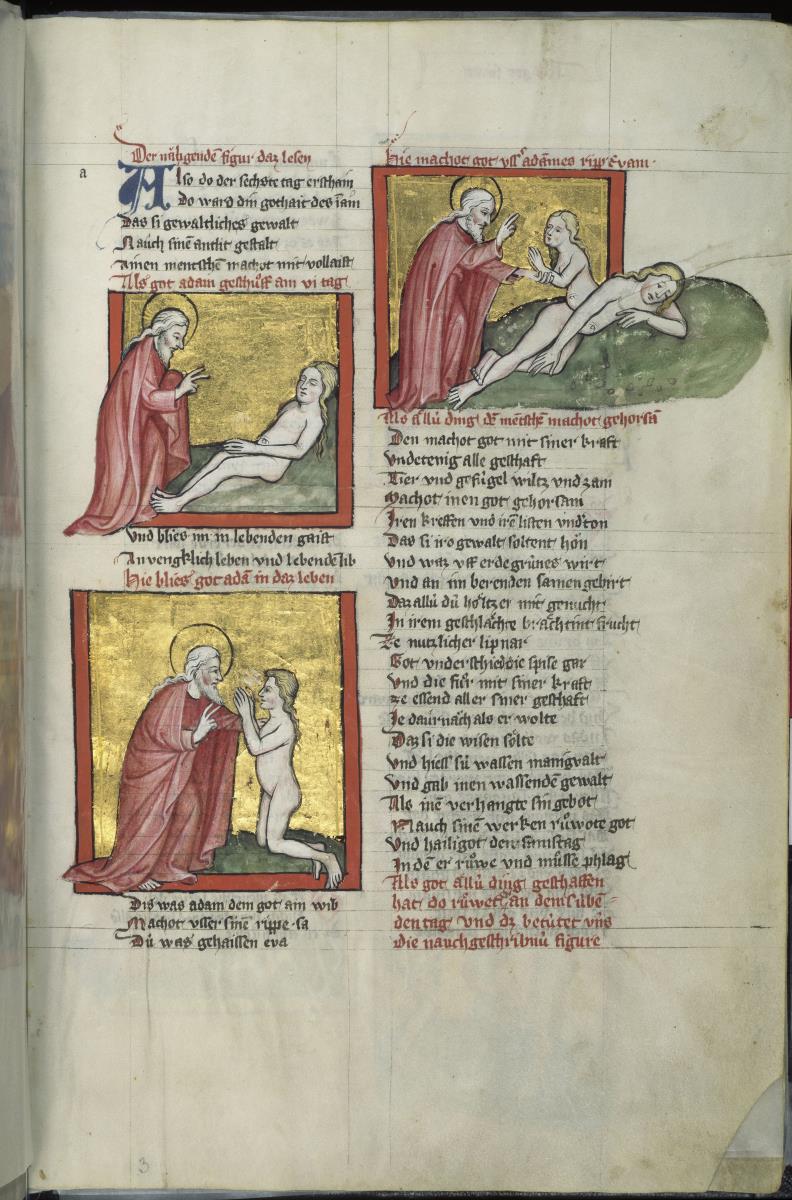 Der nachgenden figur daz lesen
a
Also do der sechste tag erschain
Do ward din gothait des
Das si gewaltliches gewalt
Nauch sinē antlit gestalt
ainen mentschē machot mit vollaist
Als got adam geschůff am vi tag
und blies im in lebenden gaist
An vengklich leben vnd lebendē lib
Hie blies got adā in daz leben
Dis was adam dem got ain wib
Machot vsser sinē rippe sa
Dů was gehaissen eva
Hie machot got vss adames ripp Evam
Als allů ding dē mētschē machot gehorsā
Den machot got mit siner kraft
vndertenig alle geschaft
Tier vnd gefügel wiltz vnd zam
Machot inen got gehorsam
Iren kreften vnd irē listen
Das si iro gewalt soltent hön
vnd waz vff erde grünes wirt
vnd an im berenden samen gebirt
Daz allů dů höltzer mit genucht
In irem geschlächte brächtint frucht
Ze nutzlicher lip nar
Got vnderschied die spise gar
vnd die für mit siner kraft
ze essend aller siner geschaft
Je darnach als er wolte
Daz si die wisen sölte
vnd hiess sů wassen manigvalt
vnd gab inen wassendē gewalt
Als inē verhangte sin gebot
Nauch sinē werken růwote got
vnd hailigot den samstag
In dē er růwe vnd můsse phlag
Als got allů ding geschaffen
hat do růwet an dem sübē=
den tag vnd dz betütet vns
die nauchgeschribnů figure
3